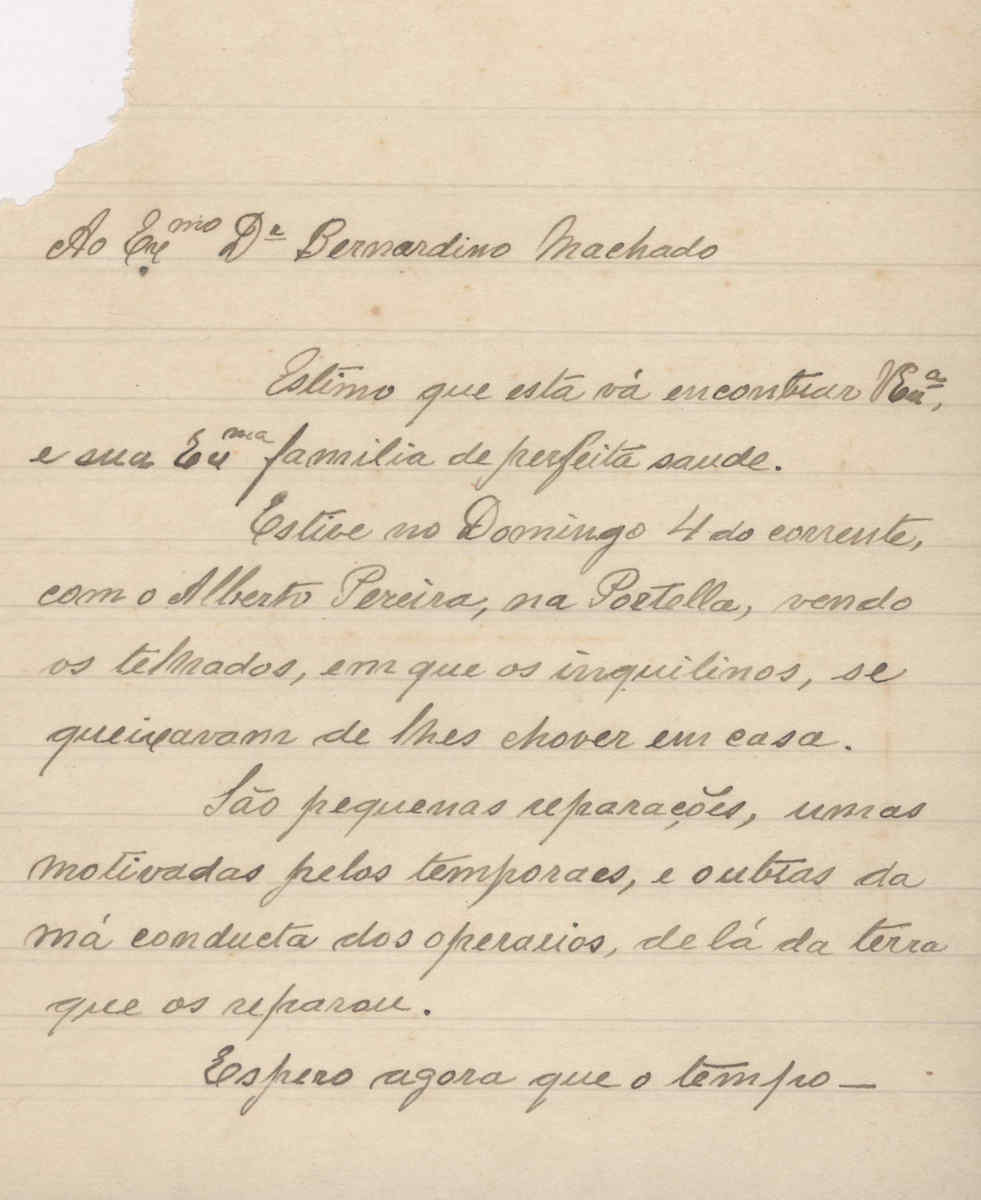 Ao Exmo Dr Bernardino Machado
Estimo que esta vá encontrar VExa,
e sua Exma familia de perfeita saude.
Estive no Domingo 4 do corrente,
com o Alberto Pereira, na Portella, vendo
os telhados, em que os inquilinos, se
queixavam de lhes chover em casa.
São pequenas reparações, umas
motivadas pelos temporaes, e outras da
má conducta dos operarios, de lá da terra
que os reparou.
Espero agora que o tempo —